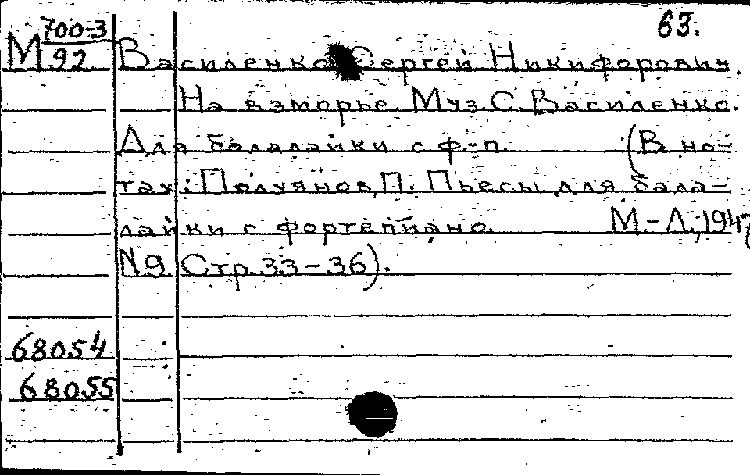 63.
М 700-3
92
Василенко Сергей Никифорович.
На взморье. Муз. С. Василенко.
Для балалайки с ф.-п. (В но-
тах: Полуянов, П. Пьесы для бала-
лайки с фортепиано. М.-Л.,
№9 Стр. 33-36).
68054
68055